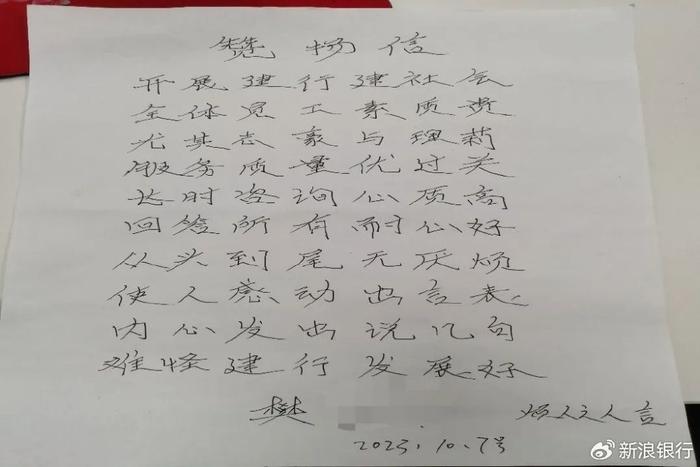 赞扬信
开展建行建社会
全体员工素质贵
尤其志豪与理莉
服务质量优过关
长时咨询心质高
回答所有耐心好
从头到尾无厌烦
使人感动出言表
内心发出说几句
难怪建行发展好
樊
人言
2023.10.7号
新浪银行